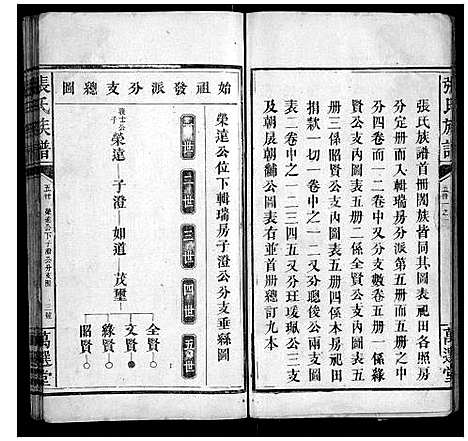 張氏族譜
五冊一之
萬選堂
張氏族譜首冊閤族皆同其圖表祀田各照房
分定冊而入輯瑞房分派第五冊而五冊之中
分四卷而一二卷又分支數卷五冊一係
賢公支內圖表五冊二係全賢公支內圖表五
冊三係昭賢公支內圖表五冊四係木房祀田
捐款一切一卷之一二又分聰俊公兩支圖
表二卷中之一二三四五又分班瑗珮公三支
及朝展朝黼公圖表冊並首冊總訂九本
始祖發派分支總圖
榮達公位下輯瑞房子澄公分支垂縣圖
一世 二世 三世 四世 五世
義士公子 榮達 子澄 如道 茂璽
全賢
文賢
緣賢
昭賢
張氏族譜
五冊 榮達公下子澄公分支圖 二號
萬選堂